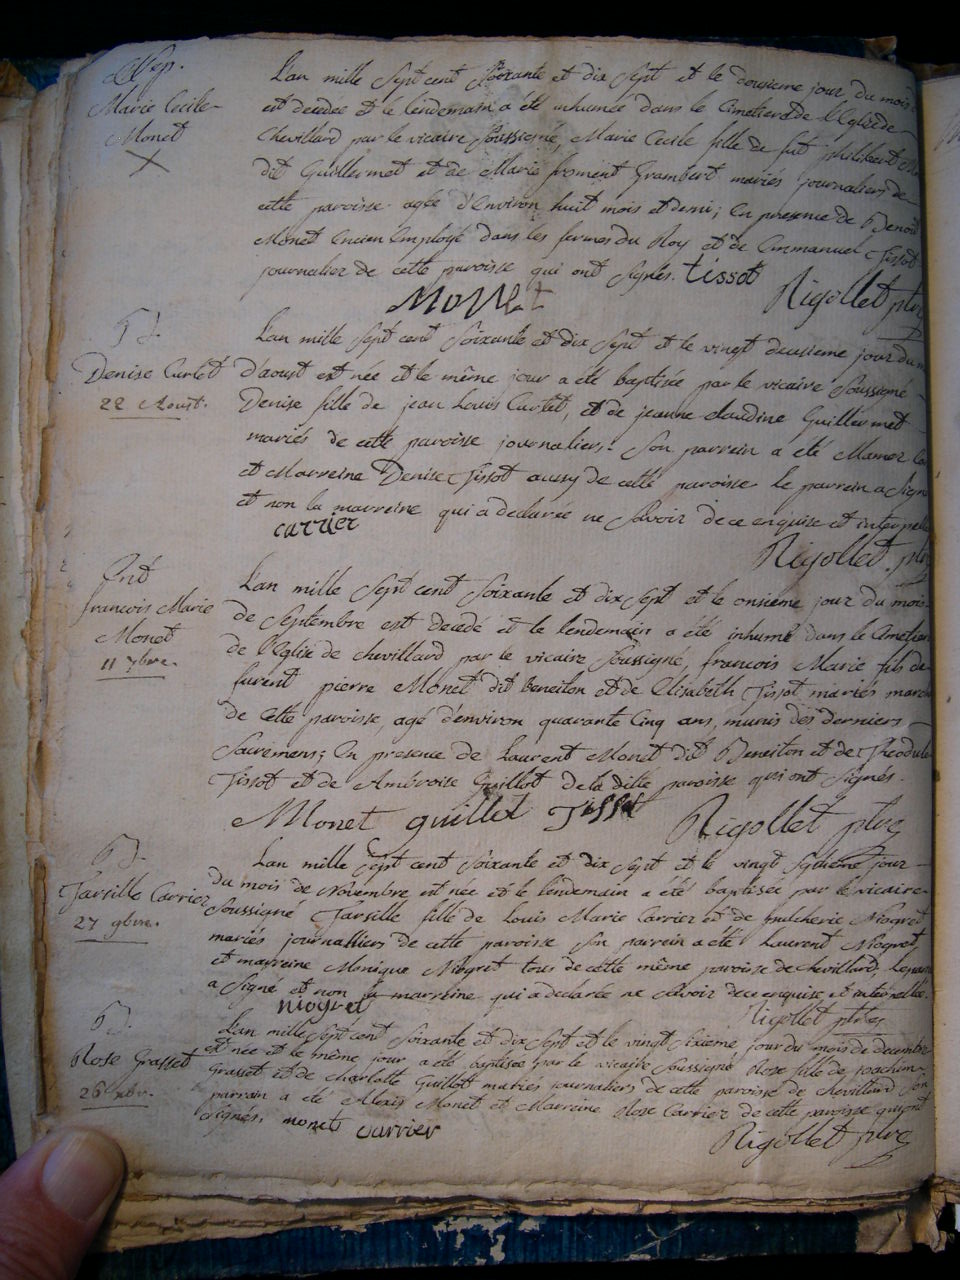 Marie Cecile
Monet
L'an mille Sept cent Soixante et dix Sept et le dousieme jour du mois
est decedée et le lendemain a été inhumée dans le Cimetiere de l'Eglise de
Chevillard par le vicaire Soussigné, Marie Cecile fille de fut philibert
dit Guillermet et de Marie froment Grambert mariés journaliers de
cette paroisse agée d'environ huit mois et demi; En presence de Benoit
Monet Encien Employé dans les fermes du Roy et de Emmanuel Tissot
journalier de cette paroisse qui ont signés. tissot
Monet Rigollet ptre
B.
Denise Curtet
22 Aoust.
L'an mille Sept cent Soixante et dix Sept et le vingt deusieme jour du
d'aoust est née et le même jour a été baptisée par le vicaire Soussigné
Denise fille de jean Louis Curtet, et de jeanne claudine Guillermet
mariés de cette paroisse journaliers. Son parrein a été Mamer
et Marreine Denise Tissot aussy de cette paroisse le parrein a Signé
et non la marreine qui a declarée ne Savoir de ce enquise et interpellée
carrier
Rigollet ptre
francois Marie
Monet
11 7bre.
L'an mille Sept cent Soixante et dix Sept et le onsieme jour du mois
de Septembre est decedé et le lendemain a été inhumé dans le Cimetiere
de l'Eglise de chevillard par le vicaire Soussigné, francois Marie fils de
furent pierre Monet dit Beneiton et de Elisabeth Tissot mariés
de Cette paroisse, agé d'environ quarante Cinq ans, munis des derniers
Sacremens; En presence de Laurent Monet dit Beneiton et de Theodule
Tissot et de Ambroise Guillot de la ditte paroisse qui ont Signés.
Monet guillot Tissot Rigollet ptre
B.
Tarsille Carrier
27 9bre.
L'an mille Sept cent Soixante et dix Sept et le vingt Sptieme jour
du mois de Novembre est née et le lendemain a été baptisée par le vicaire
Soussigné Tarsille fille de Louis Marie Carrier et de pulcherie Niogret
mariés journalliers de cette paroisse Son parrein a été Laurent Niogret,
et marreine Monique Niogret tous de cette même paroisse de chevillard, le parrein
a Signé et non la marreine qui a declarée ne Savoir de ce enquise et interpellée.
niogret Rigollet ptre
B.
Rose Grasset
26 xbr.
L'an mille Sept cent Soixante et dix Sept et le vingt Sixieme jour du mois de decembre
est née et le même jour a été baptisée par le vicaire Soussigné Rose fille de joachim
Grasset et de charlotte Guillott mariés journaliers de cette paroisse de chevillard Son
parrain a été Alexis Monet et Marreine Rose Carrier de cette paroisse qui ont
signés. monet carrier
Rigollet ptre